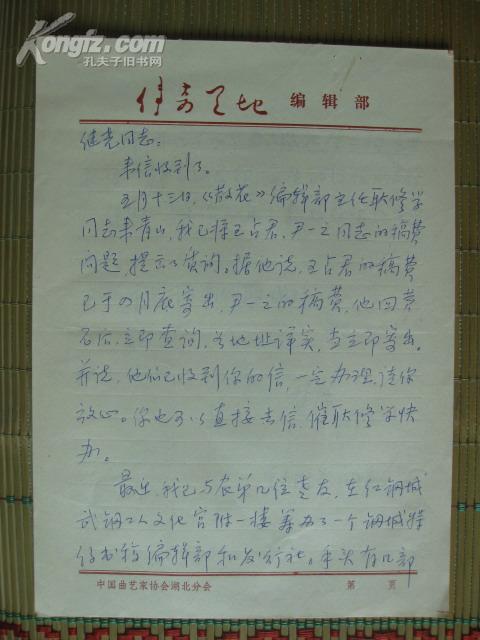 Kongfz.com
孔夫子旧书网
传奇天地 编辑部
继尧同志:
来信收到了。
五月十三日,《散花》编辑部主任耿修学
同志来青山,我已将王占君、尹一之同志的稿费
问题,提出了质询。据他说,王占君的稿费
已于四月底寄出,尹一之的稿费,他回黄
石后,立即查询,若地址详实,当立即寄出。
并说,他们已收到你的信,一定办理,请你
放心。你也可以直接去信,催耿修学快
办。
最近,我已与农弟几位老友,在红钢城
武钢工人文化宫附一楼筹办了一个钢城
传书稿编辑部和发行社。手头有几部
中国曲艺家协会湖北分会
第 页